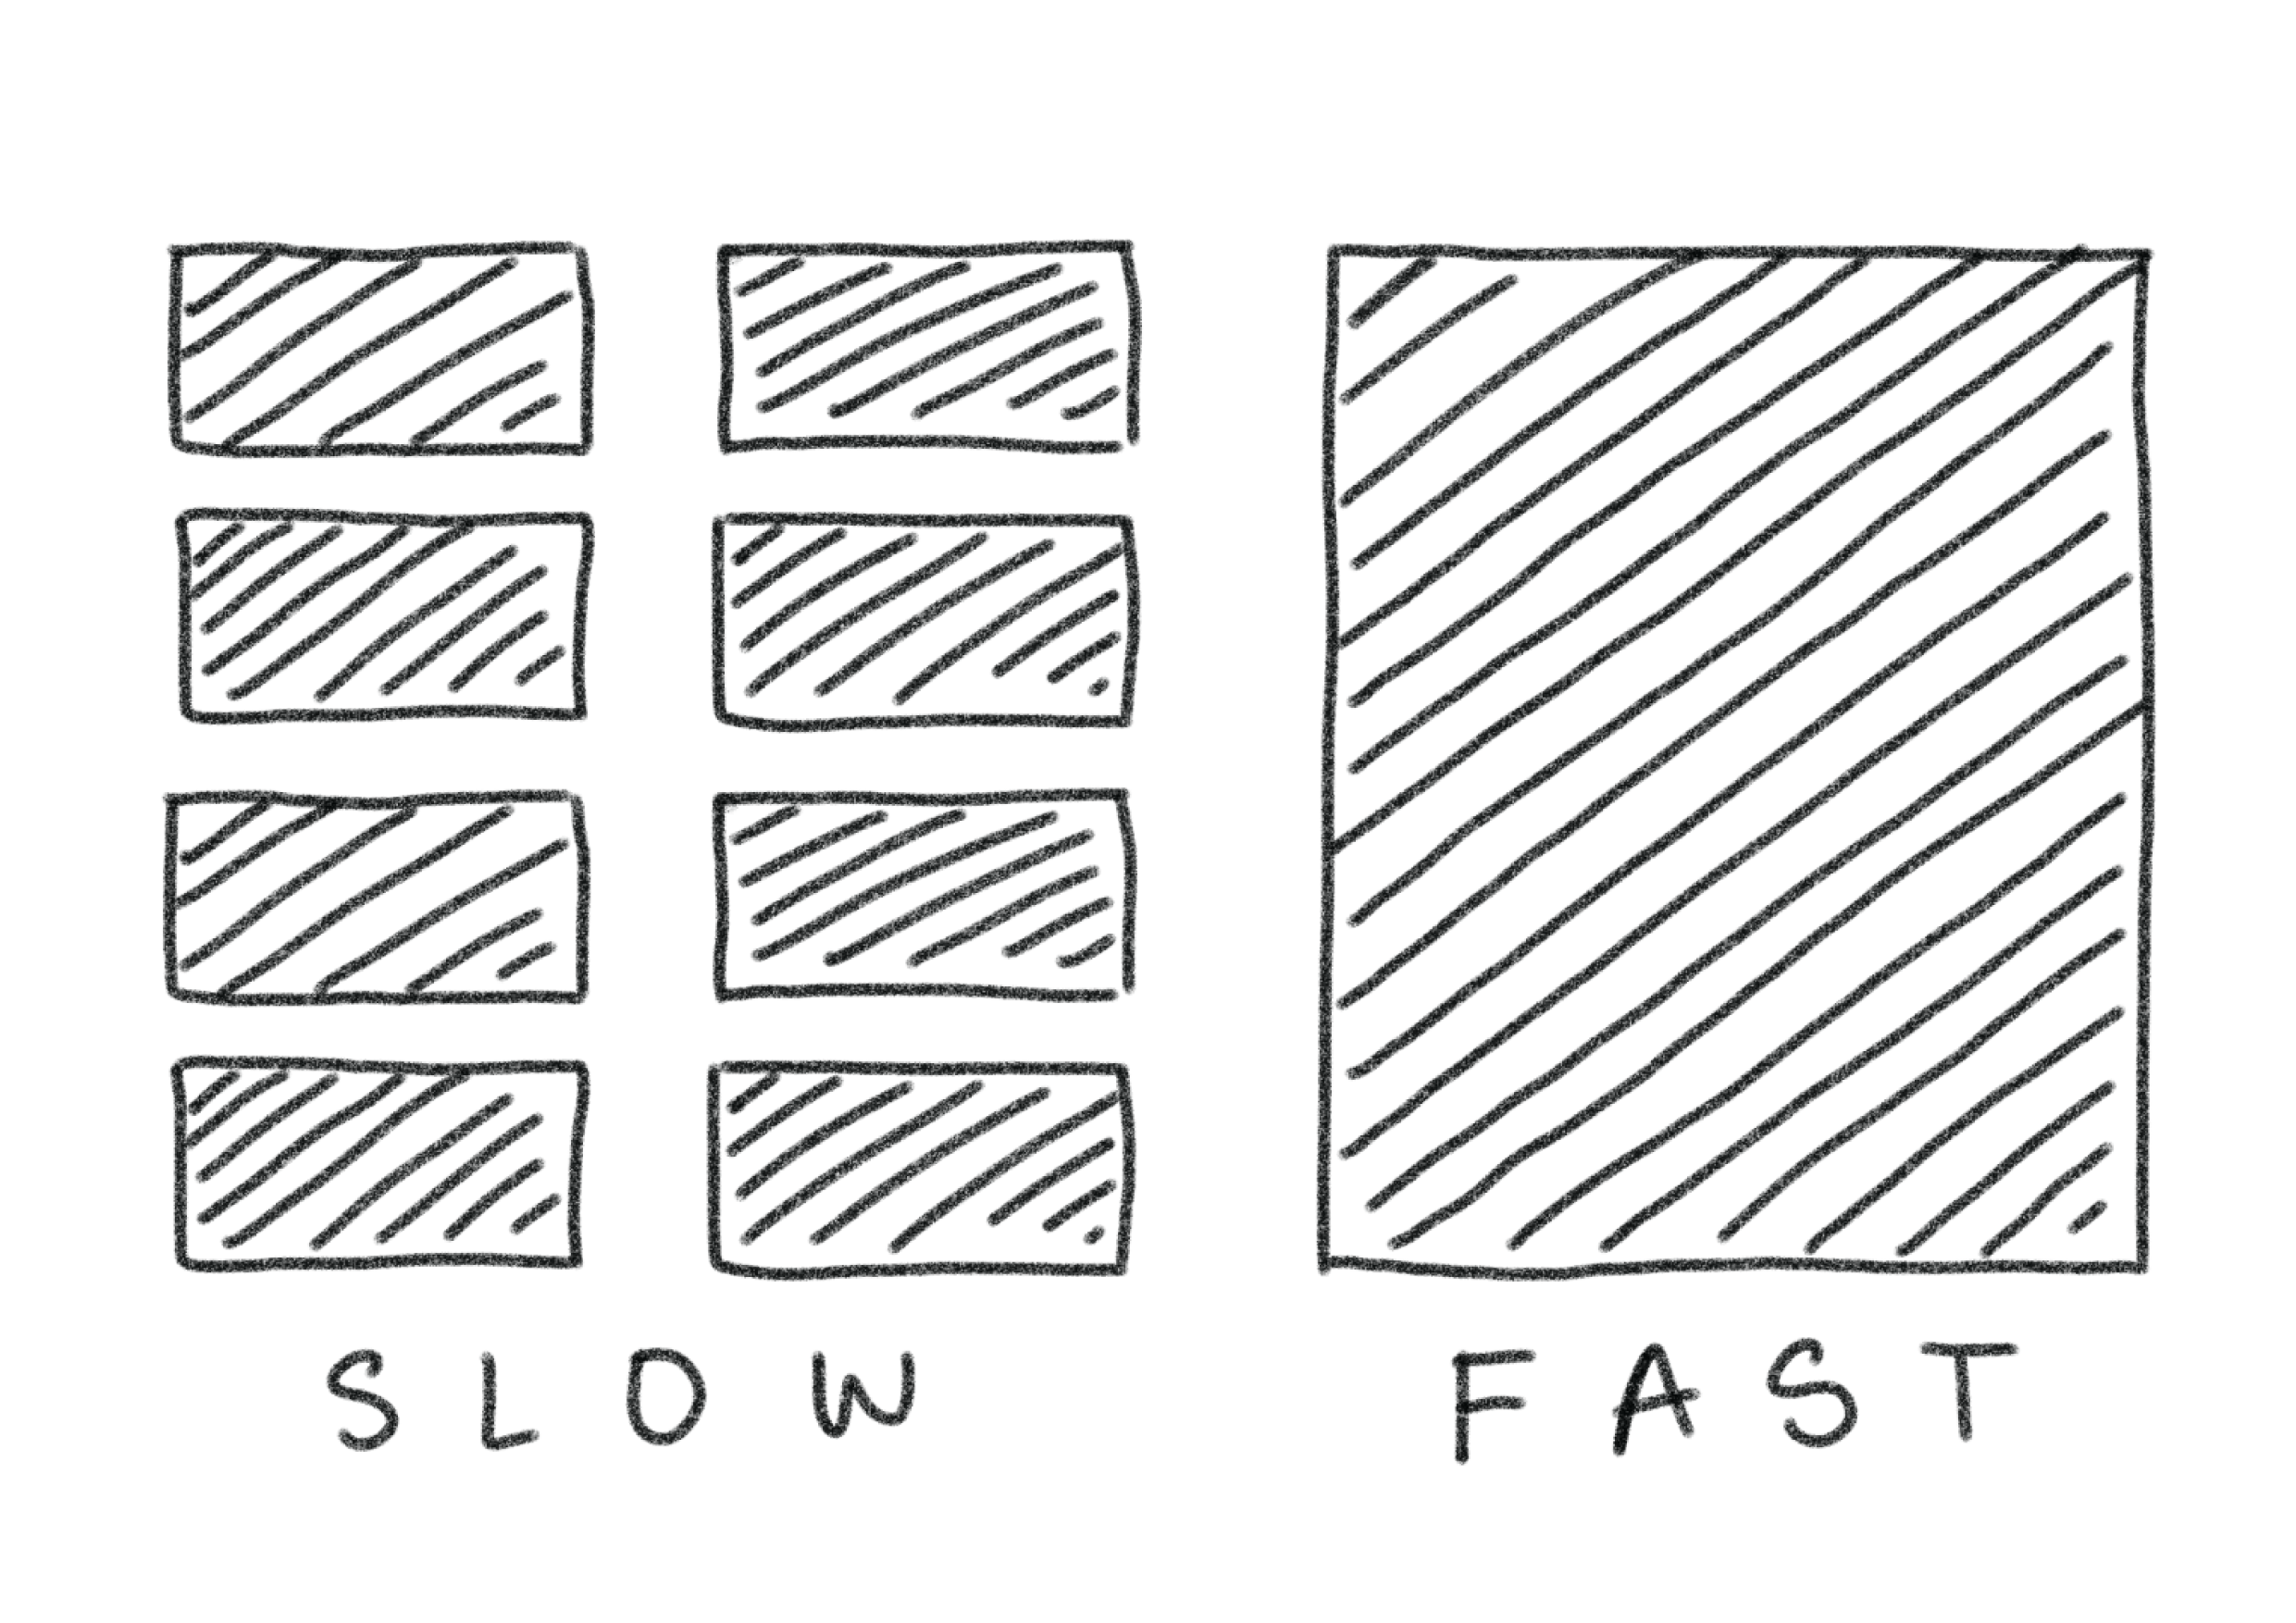 SLOW FAST